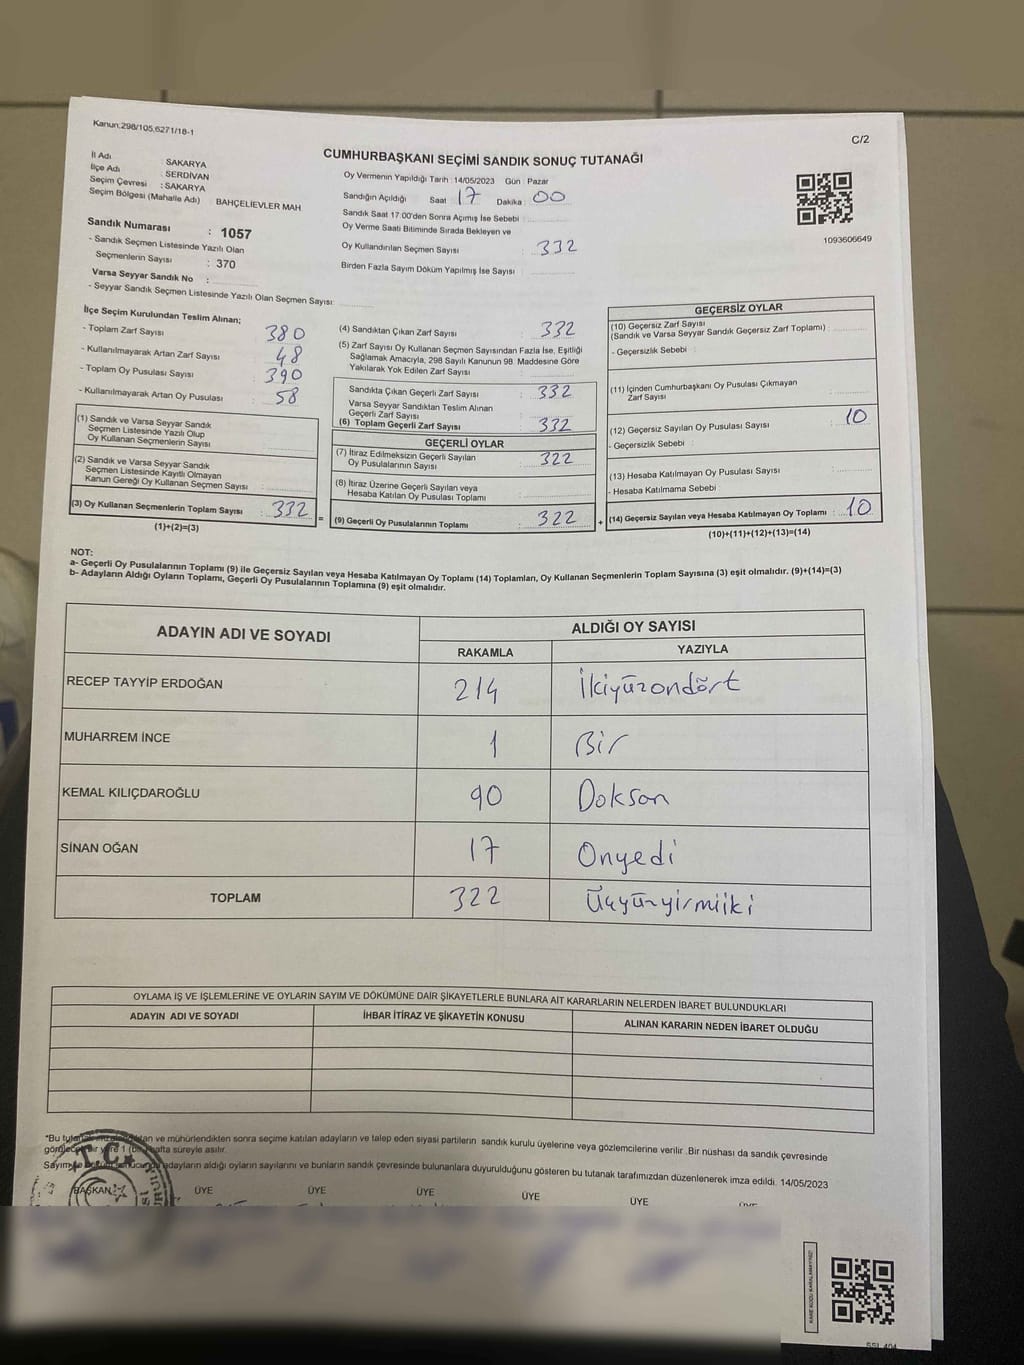 Kanun:298/105,6271/18-1
C/2
CUMHURBAŞKANI SEÇİMİ SANDIK SONUÇ TUTANAĞI
İl Adı : SAKARYA
İlçe Adı : SERDİVAN
Seçim Çevresi : SAKARYA
Seçim Bölgesi (Mahalle Adı) : BAHÇELİEVLER MAH
Sandık Numarası : 1057
- Sandık Seçmen Listesinde Yazılı Olan
Seçmenlerin Sayısı : 370
Varsa Seyyar Sandık No :
- Seyyar Sandık Seçmen Listesinde Yazılı Olan Seçmen Sayısı:
Oy Vermenin Yapıldığı Tarih : 14/05/2023 Gün : Pazar
Sandığın Açıldığı Saat : 17 Dakika : 00
Sandık Saat 17:00'den Sonra Açımış İse Sebebi :
Oy Verme Saati Bitiminde Sırada Bekleyen ve
Oy Kullandırılan Seçmen Sayısı : 332
Birden Fazla Sayım Döküm Yapılmış İse Sayısı :
1093606649
İlçe Seçim Kurulundan Teslim Alınan;
- Toplam Zarf Sayısı : 380
- Kullanılmayarak Artan Zarf Sayısı : 48
- Toplam Oy Pusulası Sayısı : 390
- Kullanılmayarak Artan Oy Pusulası : 58
(1) Sandık ve Varsa Seyyar Sandık
Seçmen Listesinde Yazılı Olup
Oy Kullanan Seçmenlerin Sayısı :
(2) Sandık ve Varsa Seyyar Sandık
Seçmen Listesinde Kayıtlı Olmayan
Kanun Gereği Oy Kullanan Seçmen Sayısı :
(3) Oy Kullanan Seçmenlerin Toplam Sayısı : 332
(1)+(2)=(3)
(4) Sandıktan Çıkan Zarf Sayısı : 332
(5) Zarf Sayısı Oy Kullanan Seçmen Sayısından Fazla İse, Eşitliği
Sağlamak Amacıyla, 298 Sayılı Kanunun 98. Maddesine Göre
Yakılarak Yok Edilen Zarf Sayısı :
Sandıkta Çıkan Geçerli Zarf Sayısı : 332
Varsa Seyyar Sandıktan Teslim Alınan
Geçerli Zarf Sayısı :
(6) Toplam Geçerli Zarf Sayısı : 332
GEÇERLİ OYLAR
(7) İtiraz Edilmeksizin Geçerli Sayılan
Oy Pusulalarının Sayısı : 322
(8) İtiraz Üzerine Geçerli Sayılan veya
Hesaba Katılan Oy Pusulası Toplamı :
= (9) Geçerli Oy Pusulalarının Toplamı : 322 +
GEÇERSİZ OYLAR
(10) Geçersiz Zarf Sayısı
(Sandık ve Varsa Seyyar Sandık Geçersiz Zarf Toplamı) :
- Geçersizlik Sebebi :
(11) İçinden Cumhurbaşkanı Oy Pusulası Çıkmayan
Zarf Sayısı :
(12) Geçersiz Sayılan Oy Pusulası Sayısı : 10
- Geçersizlik Sebebi :
(13) Hesaba Katılmayan Oy Pusulası Sayısı :
- Hesaba Katılmama Sebebi :
(14) Geçersiz Sayılan veya Hesaba Katılmayan Oy Toplamı : 10
(10)+(11)+(12)+(13)=(14)
NOT:
a- Geçerli Oy Pusulalarının Toplamı (9) ile Geçersiz Sayılan veya Hesaba Katılmayan Oy Toplamı (14) Toplamları, Oy Kullanan Seçmenlerin Toplam Sayısına (3) eşit olmalıdır. (9)+(14)=(3)
b- Adayların Aldığı Oyların Toplamı, Geçerli Oy Pusulalarının Toplamına (9) eşit olmalıdır.
ADAYIN ADI VE SOYADI
ALDIĞI OY SAYISI
RAKAMLA YAZIYLA
RECEP TAYYİP ERDOĞAN 214 İkiyüzondört
MUHARREM İNCE 1 Bir
KEMAL KILIÇDAROĞLU 90 Doksan
SİNAN OĞAN 17 Onyedi
TOPLAM 322 Üçyüzyirmiiki
OYLAMA İŞ VE İŞLEMLERİNE VE OYLARIN SAYIM VE DÖKÜMÜNE DAİR ŞİKAYETLERLE BUNLARA AİT KARARLARIN NELERDEN İBARET BULUNDUKLARI
ADAYIN ADI VE SOYADI İHBAR İTİRAZ VE ŞİKAYETİN KONUSU ALINAN KARARIN NEDEN İBARET OLDUĞU
*Bu ve mühürlendikten sonra seçime katılan adayların ve talep eden siyasi partilerin sandık kurulu üyelerine veya gözlemcilerine verilir .Bir nüshası da sandık çevresinde
bir yere 1 hafta süreyle asılır.
adayların aldığı oyların sayılarını ve bunların sandık çevresinde bulunanlara duyurulduğunu gösteren bu tutanak tarafımızdan düzenlenerek imza edildi. 14/05/2023
T.C.
BAŞKAN ÜYE ÜYE ÜYE ÜYE ÜYE ÜYE